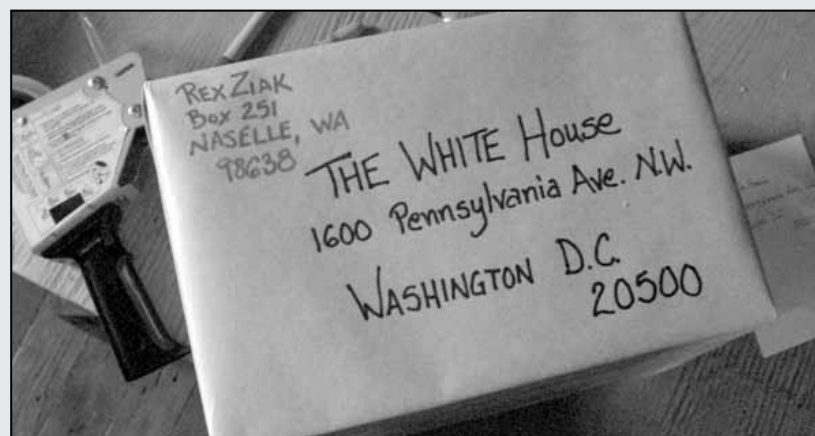 Rex Ziak
Box 251
Naselle, WA
98638
The White House
1600 Pennsylvania Ave. N.W.
Washington D.C.
20500